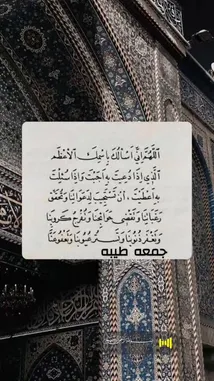 اللَّهُمَّ إِنِّي أَسْأَلُكَ بِاسْمِكَ الْأَعْظَمِ
الَّذِي إِذَا دُعِيتَ بِهِ أَجَبْتَ وَإِذَا سُئِلْتَ
بِهِ أَعْطَيْتَ ، أَنْ تَسْتَجِيبَ لِدَعَوَاتِنَا وَتُحَقِّقَ
رَغَبَاتِنَا وَتَقْضِيَ حَوَائِجَنَا وَتُفَرِّجَ كُرُوبَنَا
وَتَغْفِرَ ذُنُوبَنَا وَتَسْتُرَ عُيُوبَنَا وَتَعْفُوَ عَنَّا
جمعه طيبه